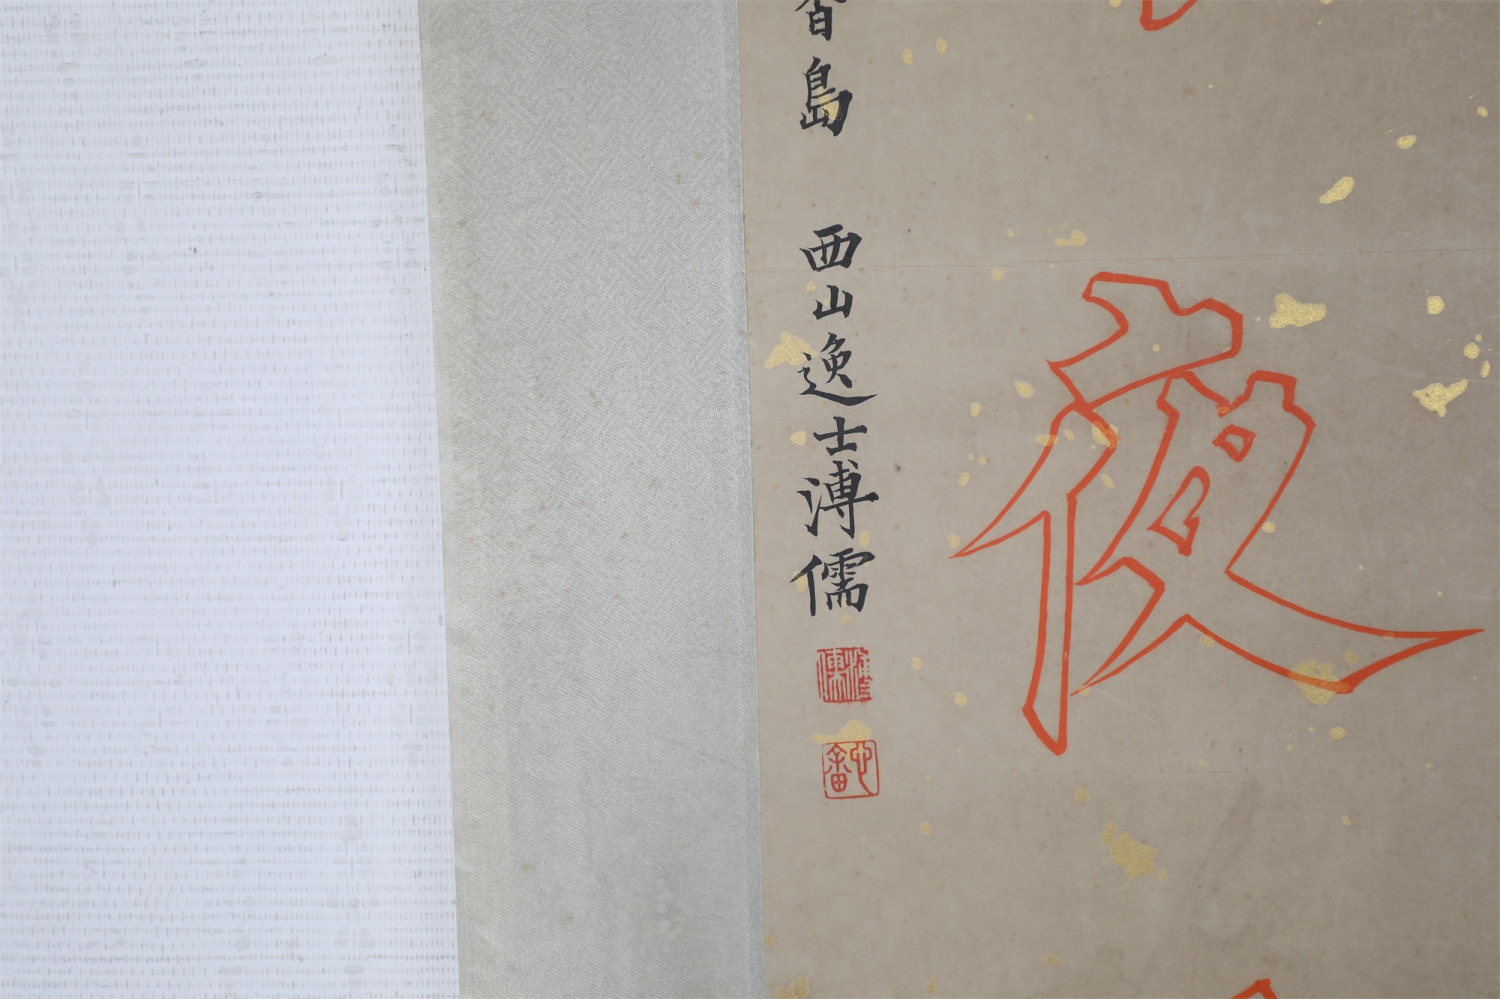 夜
島 西山逸士溥儒
溥儒
心畬